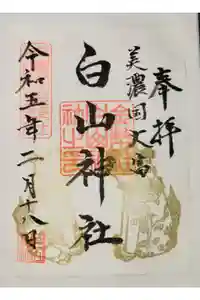 奉拝
美濃国大富
白山神社
令和五年二月十八日